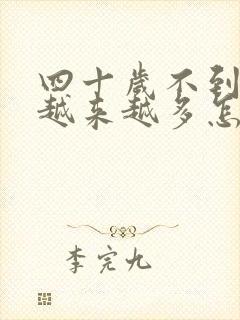 四十岁不到
越来越多怎
李完九